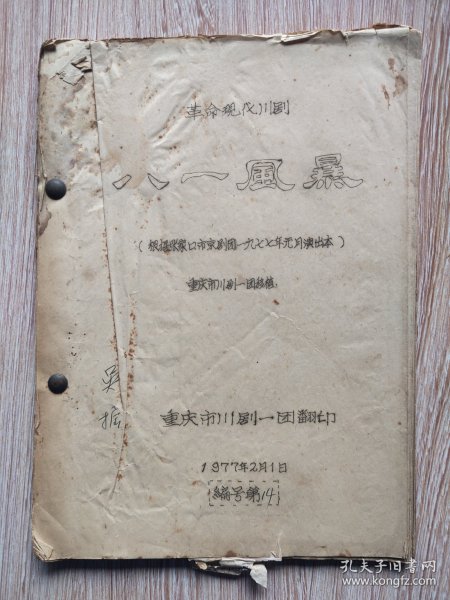 革命现代川剧
八一風暴
（根据张家口市京剧团一九七七年元月演出本）
重庆市川剧一团移植
吴
重庆市川剧一团翻印
1977年2月1日
编号第14
孔夫子旧书网
www.kongfz.com